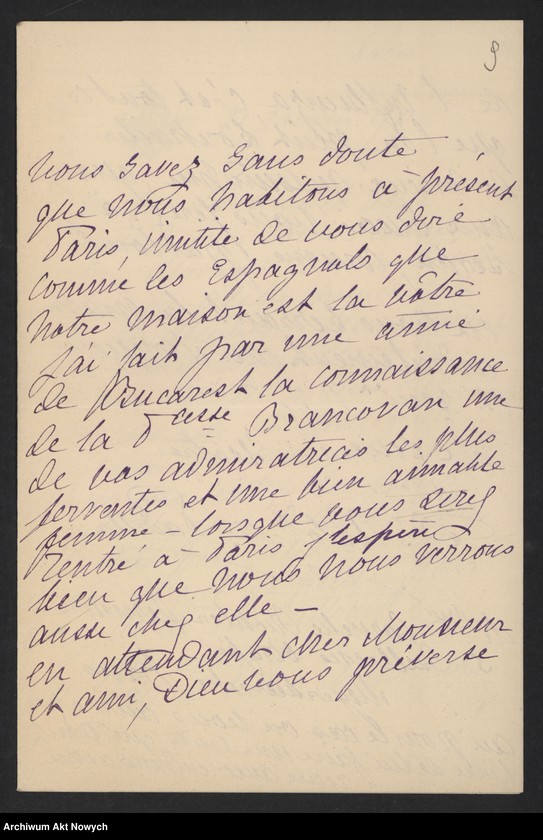 9
vous savez sans doute
que nous habitons à présent
Paris, inutile de vous dire
comme les Espagnols que
notre maison est la vôtre
J'ai fait par une amie
de Bucarest la connaissance
de la Pcesse Brancovan une
de vos admiratrices les plus
ferventes et une bien aimable
femme – lorsque vous serez
rentré à Paris j'espère
bien que nous nous verrons
aussi chez elle –
en attendant cher Monsieur
et ami, Dieu vous préverse
Archiwum Akt Nowych